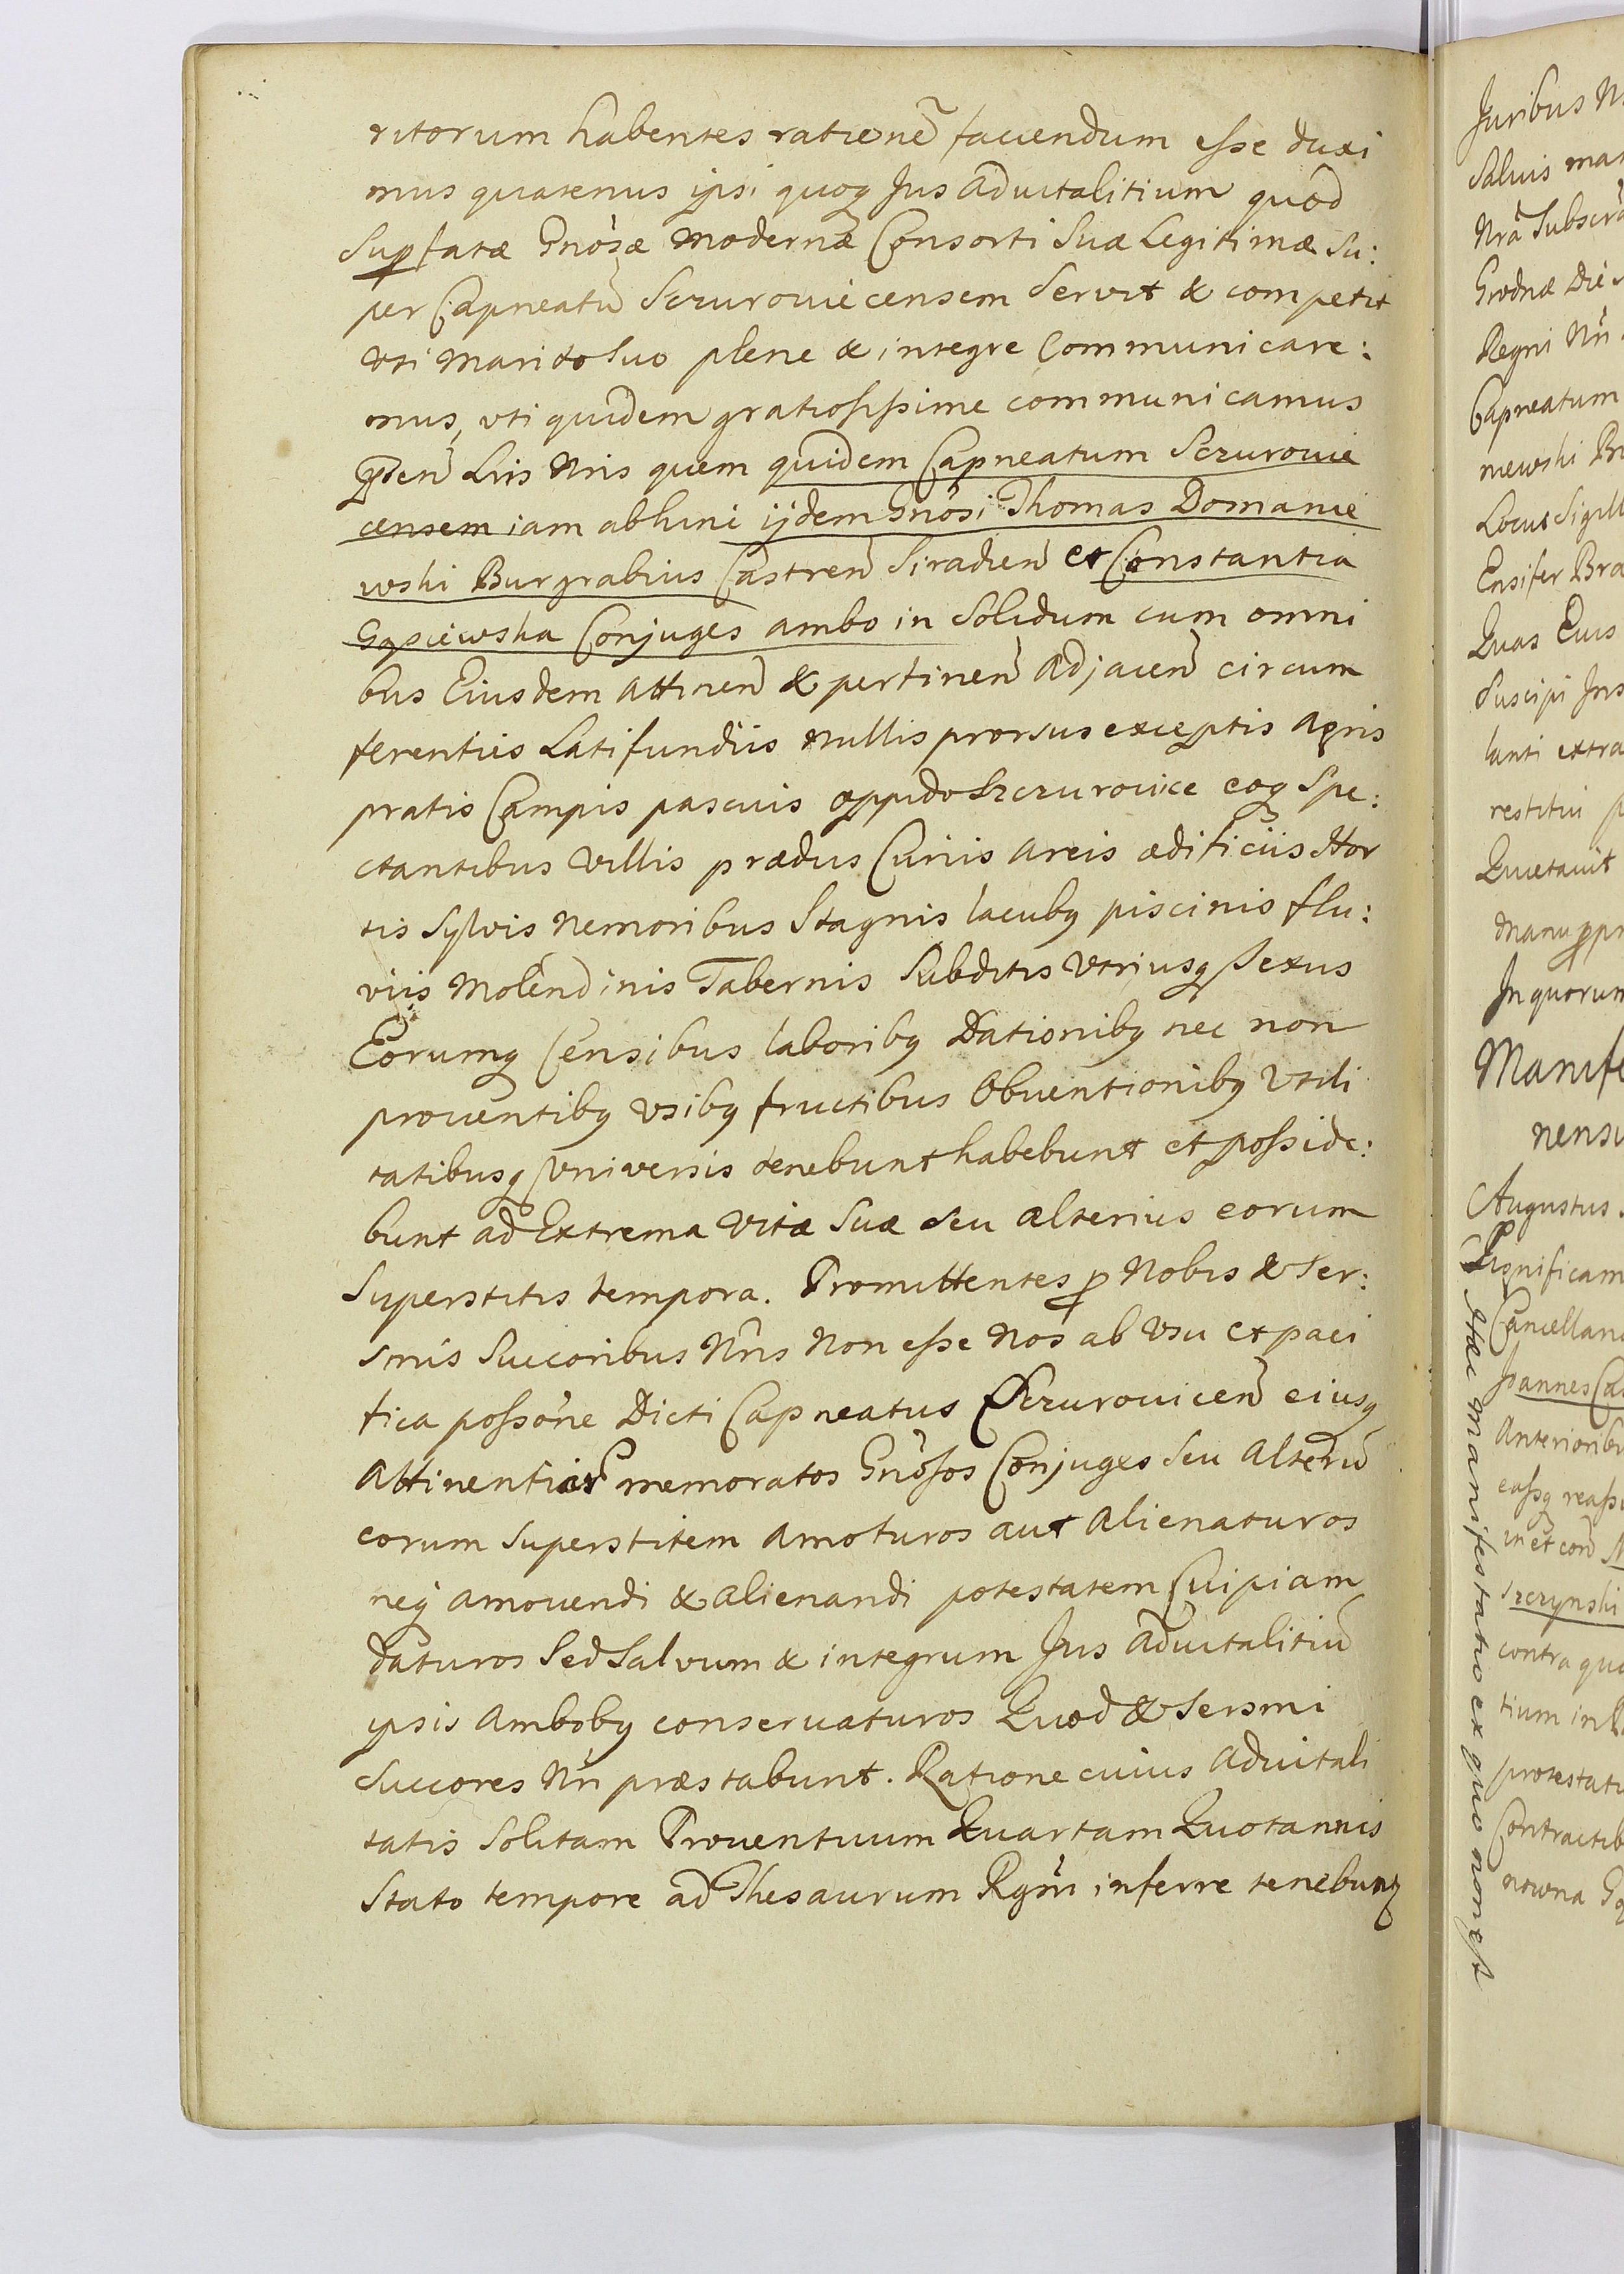 ritorum habentes rationẽ faciendum esse duxi
mus quatenus ipsi quoq Jus Aduitalitium quod
Supfatæ Gnosæ modernæ Consorti Suæ Legitimæ Su:
per Capneatũ Sczurouiecensem Servit & competit
Vti Marito Suo plene & integre Communicare:
mus, vti quidem gratiosissime communicamus
pñten Lris Nris quem quidem Capneatum Sczurouie
censem iam abhinc ijdem Gnosi Thomas Domanie
wski Burgrabius Castren Siradien et Constantia
Gąsiewska Conjuges ambo in Solidum cum omni
bus Eiusdem Attinen & pertinen Adjacen circum
ferentiis Latifundiis nullis prorsus exceptis Agris
pratis Campis pascuis oppido Szczurowice eoq Spe:
ctantibus Villis prædiis Curiis Areis ædificiis Hor
tis Sylvis Nemoribus Stagnis lacubq piscinis flu:
viis Molendinis Tabernis Subditis Vtriusq Sexus
Eorumq Censibus laboribq Dationibq nec non
prouentibq Vsibq fructibus Obuentionibq Vtili
tatibusq Vniversis tenebunt habebunt et posside:
bunt ad Extrema Vitæ Suæ Seu alterius eorum
Superstitis tempora. Promittentes p Nobis & Ser:
smis Succoribus Nris Non esse Nos ab Vsu et paci
fica possone Dicti Capneatus Sczurouicen eiusq
Attinentiis memoratos Gnosos Conjuges Seu Alterũ
eorum Superstitem Amoturos aut Alienaturos
neq Amouendi & Alienandi potestatem Cuipiam
daturos Sed Salvum & integrum Jus Aduitalitiũ
ipsis Ambobq conseruaturos Quod & Sersmi
Succores Nri præstabunt. Ratione cuius Aduitali
tatis Solitam Prouentuum Quartam Quotannis
Stato tempore ad Thesaurum Rgni inferre tenebunt
Juribus
Saluis
Nrã
Grodnæ Die
Regni Nri
Capneatum
Locus Sigill
Ensifer
Quas
Suscipi
lanti extra
restitui
Quietauit
Manu ppr
In quorum
Manife
Augustus
Significam
Joannes
Anterioribu
contra
tium in
Hæc manifestatio ex quo non est